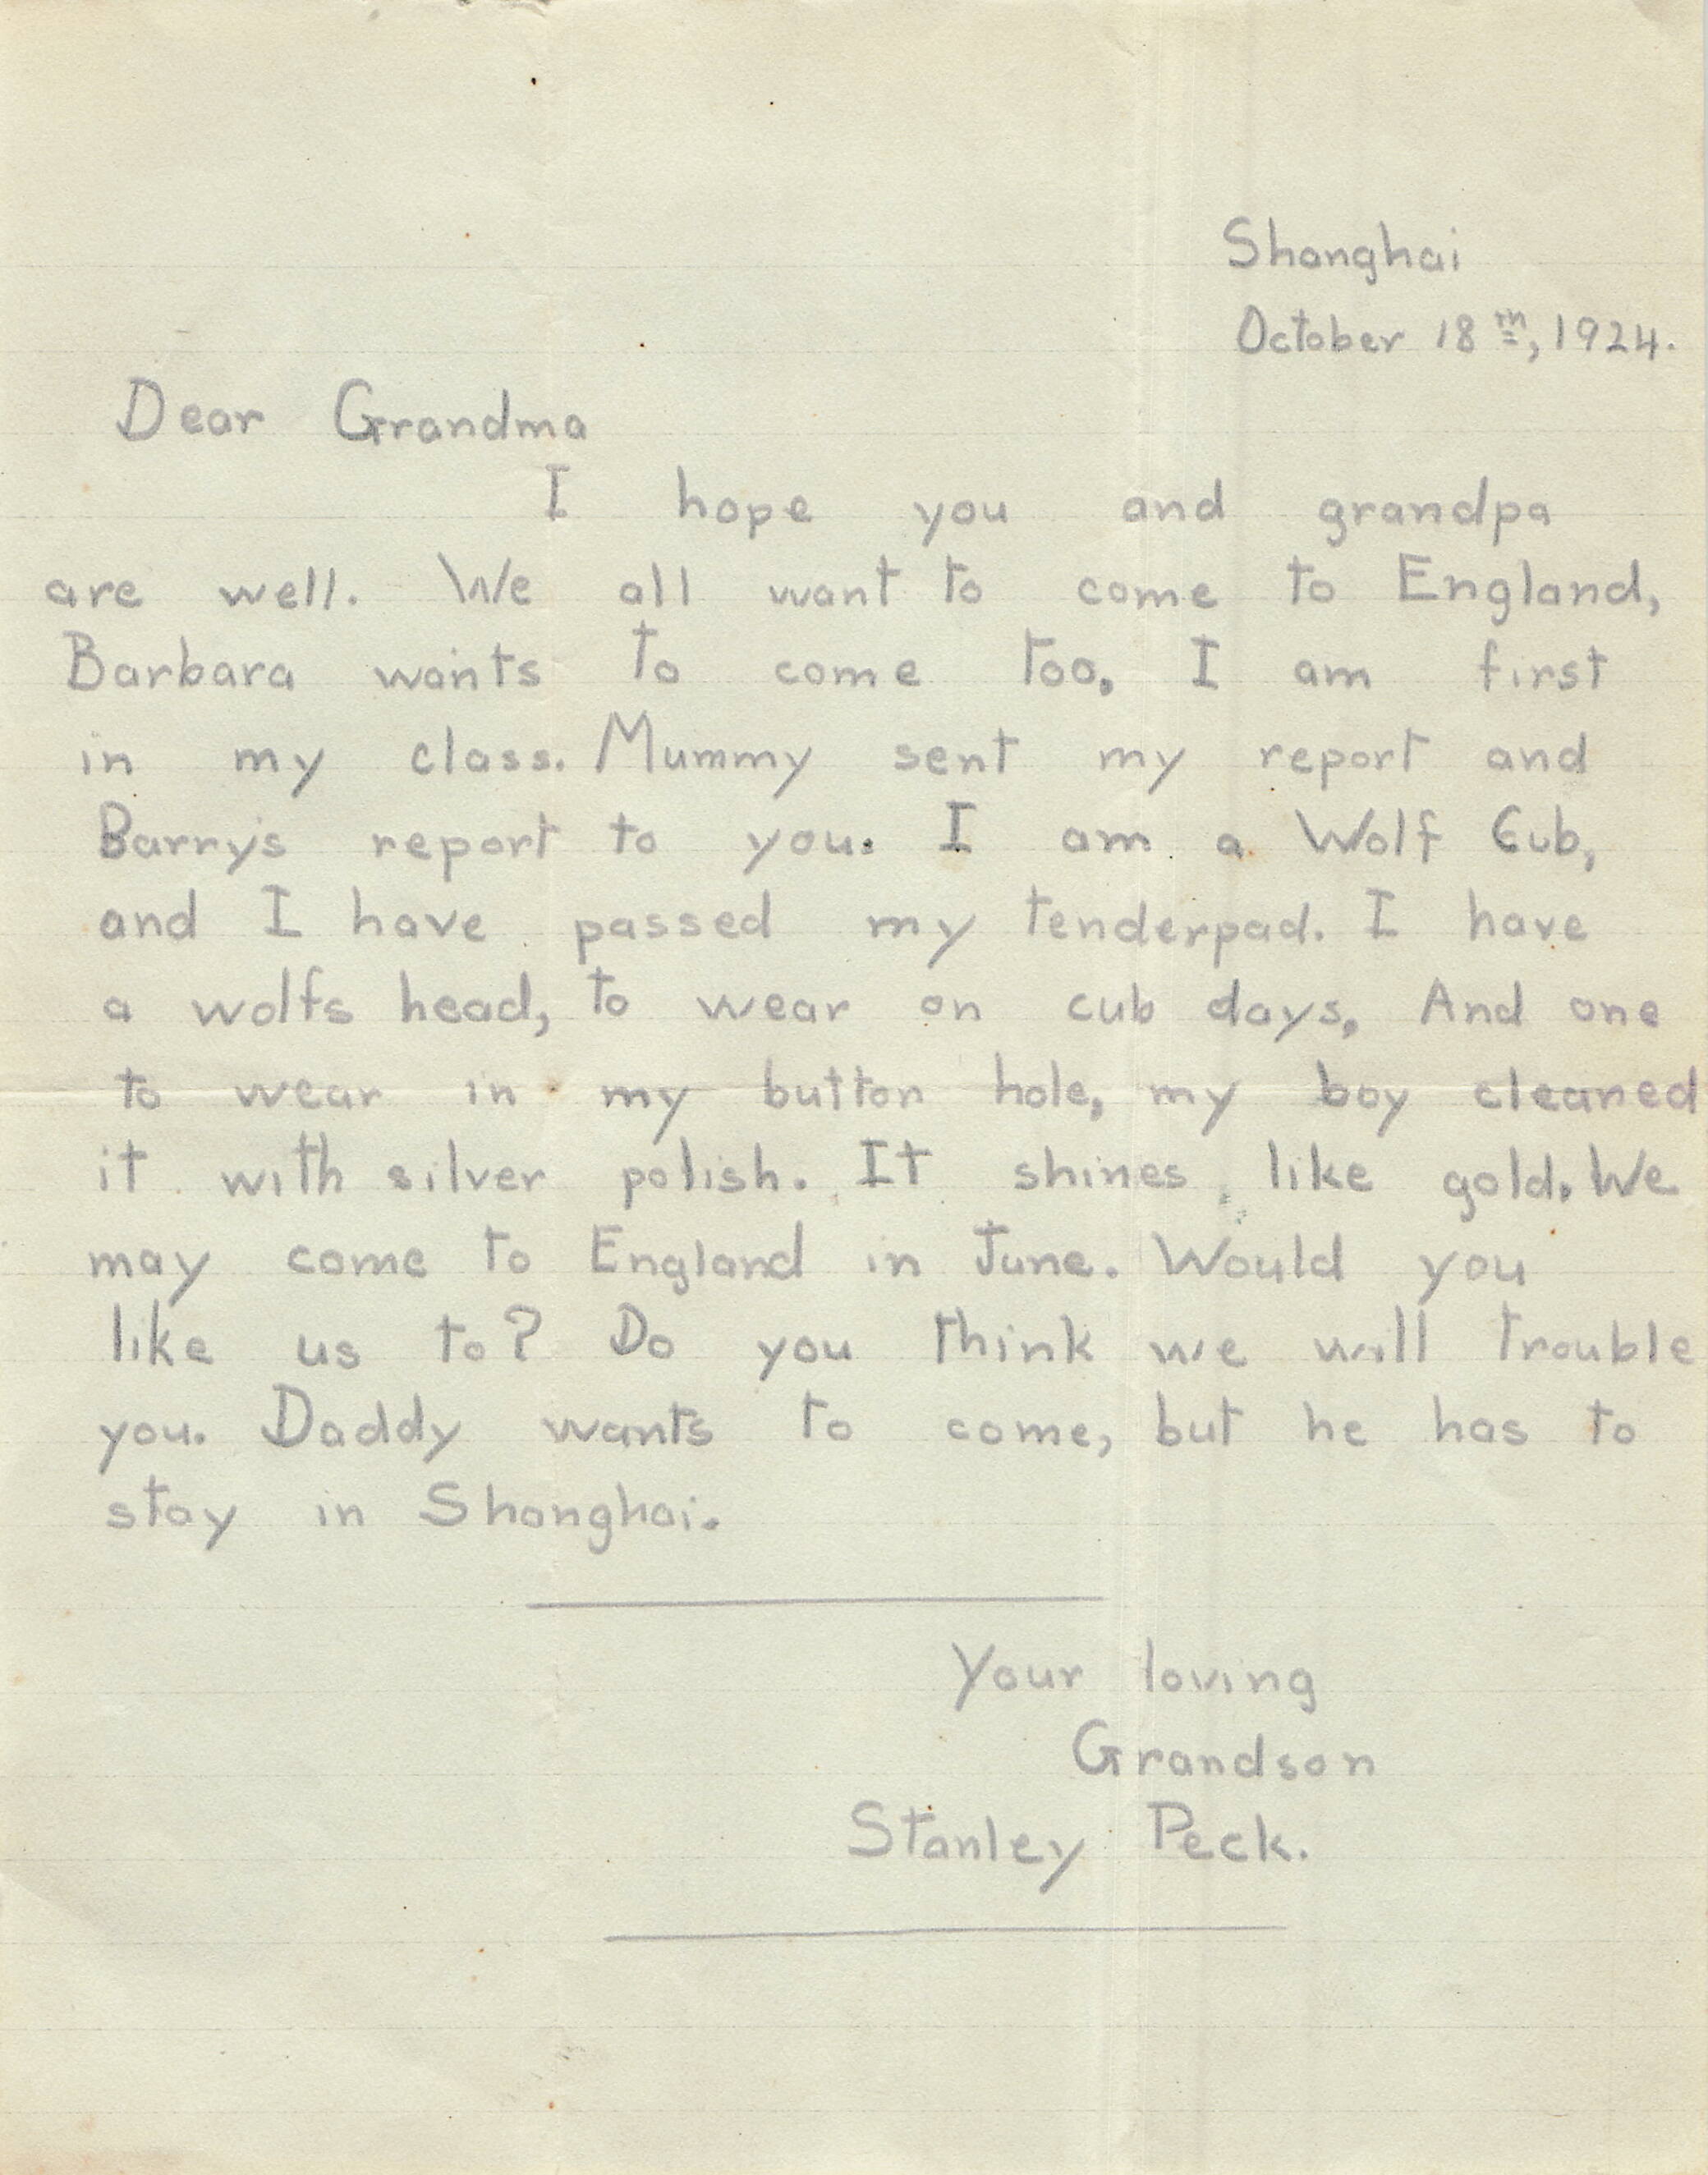 Shanghai
October 18th, 1924.
Dear Grandma
I hope you and grandpa
are well. We all want to come to England,
Barbara wants to come too. I am first
in my class. Mummy sent my report and
Barry's report to you. I am a Wolf Cub,
and I have passed my tenderpad. I have
a wolfs head, to wear on cub days. And one
to wear in my button hole, my boy cleaned
it with silver polish. It shines like gold. We
may come to England in June. Would you
like us to? Do you think we will trouble
you. Daddy wants to come, but he has to
stay in Shanghai.
Your loving
Grandson
Stanley Peck.